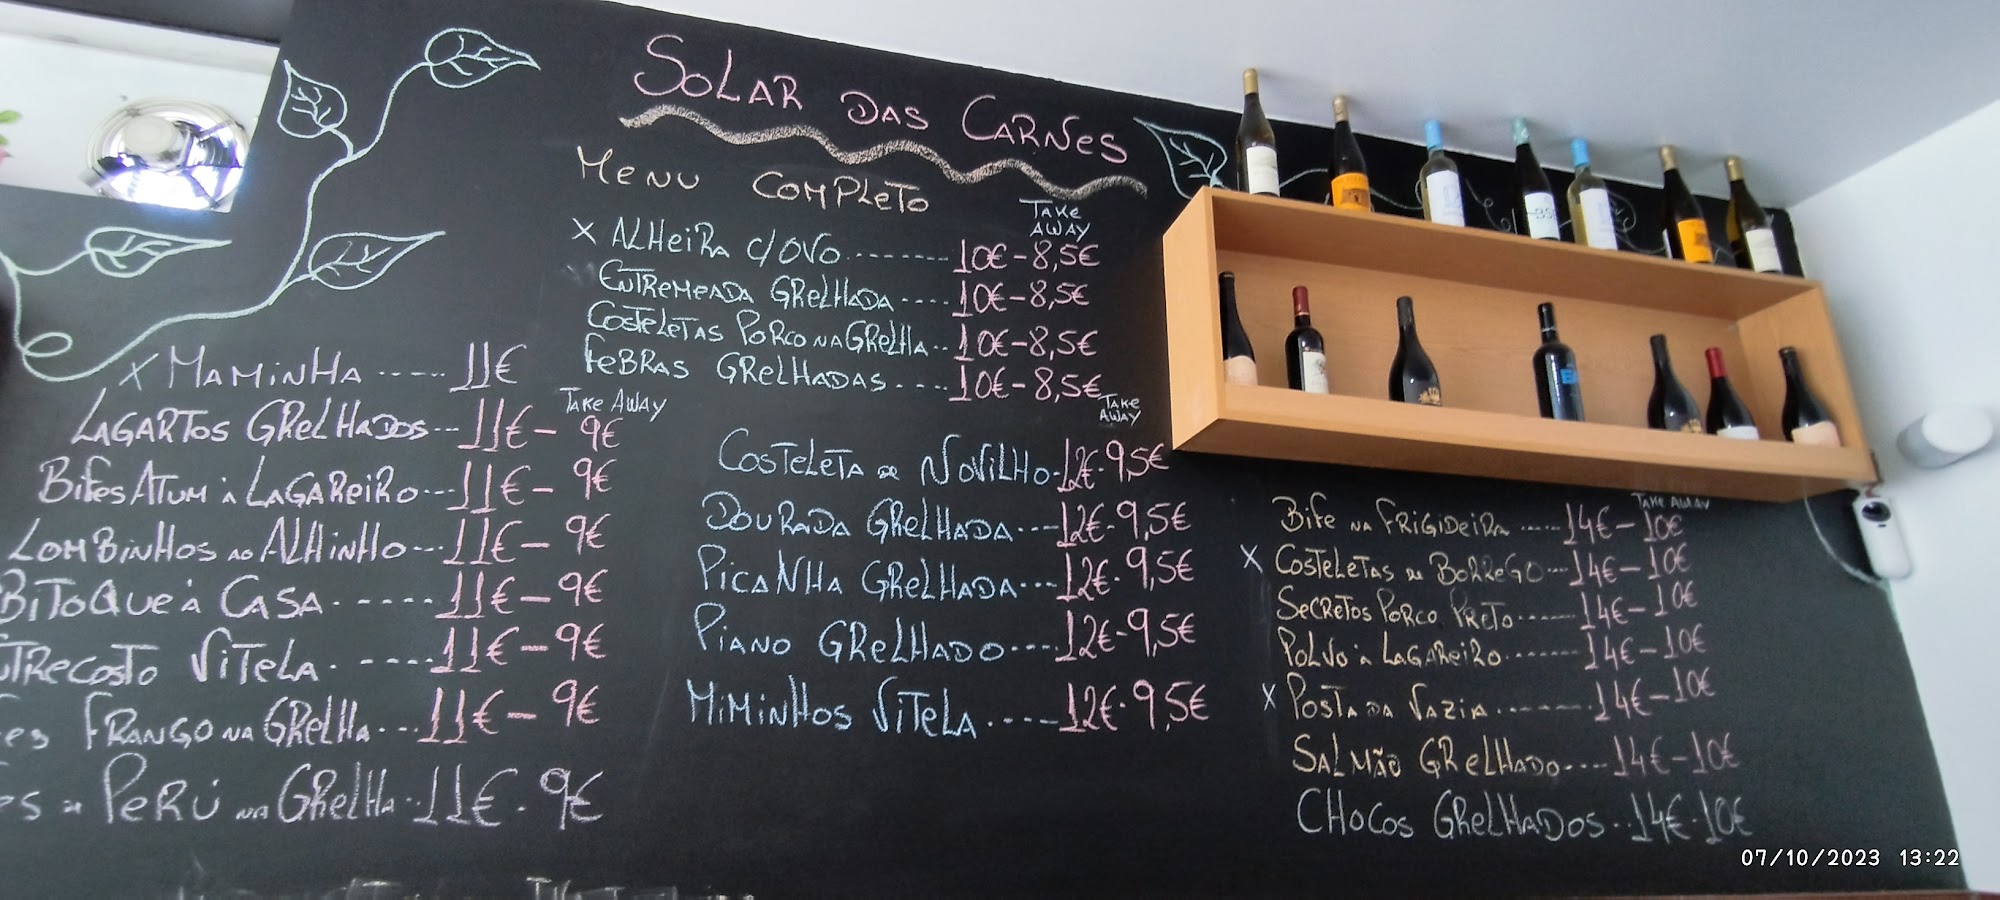 SOLAR DAS CARNES
MENU COMPLETO
TAKE AWAY
X ALHEIRA C/OVO -------- 10€-8,5€
ENTREMEADA GRELHADA ---- 10€-8,5€
COSTELETAS PORCO NA GRELHA -- 10€-8,5€
FEBRAS GRELHADAS ---- 10€-8,5€
X MAMINHA ------ 11€
TAKE AWAY
LAGARTOS GRELHADOS --- 11€-9€
BIFES ATUM À LAGAREIRO --- 11€-9€
LOMBINHOS AO ALHINHO --- 11€-9€
BITOQUE À CASA ------ 11€-9€
VITELA ------ 11€-9€
FRANGO NA GRELHA --- 11€-9€
PERÚ NA GRELHA -- 11€-9€
TAKE AWAY
COSTELETA DE NOVILHO - 12€-9,5€
DOURADA GRELHADA --- 12€-9,5€
PICANHA GRELHADA --- 12€-9,5€
PIANO GRELHADO --- 12€-9,5€
MIMINHOS VITELA ----- 12€-9,5€
TAKE AWAY
BIFE NA FRIGIDEIRA ----- 14€-10€
X COSTELETAS DE BORREGO --- 14€-10€
SECRETOS PORCO PRETO ------ 14€-10€
POLVO À LAGAREIRO ------- 14€-10€
X POSTA DA VAZIA -------- 14€-10€
SALMÃO GRELHADO ---- 14€-10€
CHOCOS GRELHADOS -- 14€-10€
07/10/2023 13:22